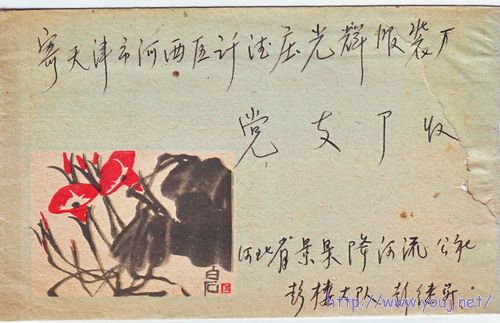 寄天津市河西区谦德庄光辉服装厂
党支卩收
白石
河北省景县降河流公社
彭楼大队 彭
http://www.youj.net/